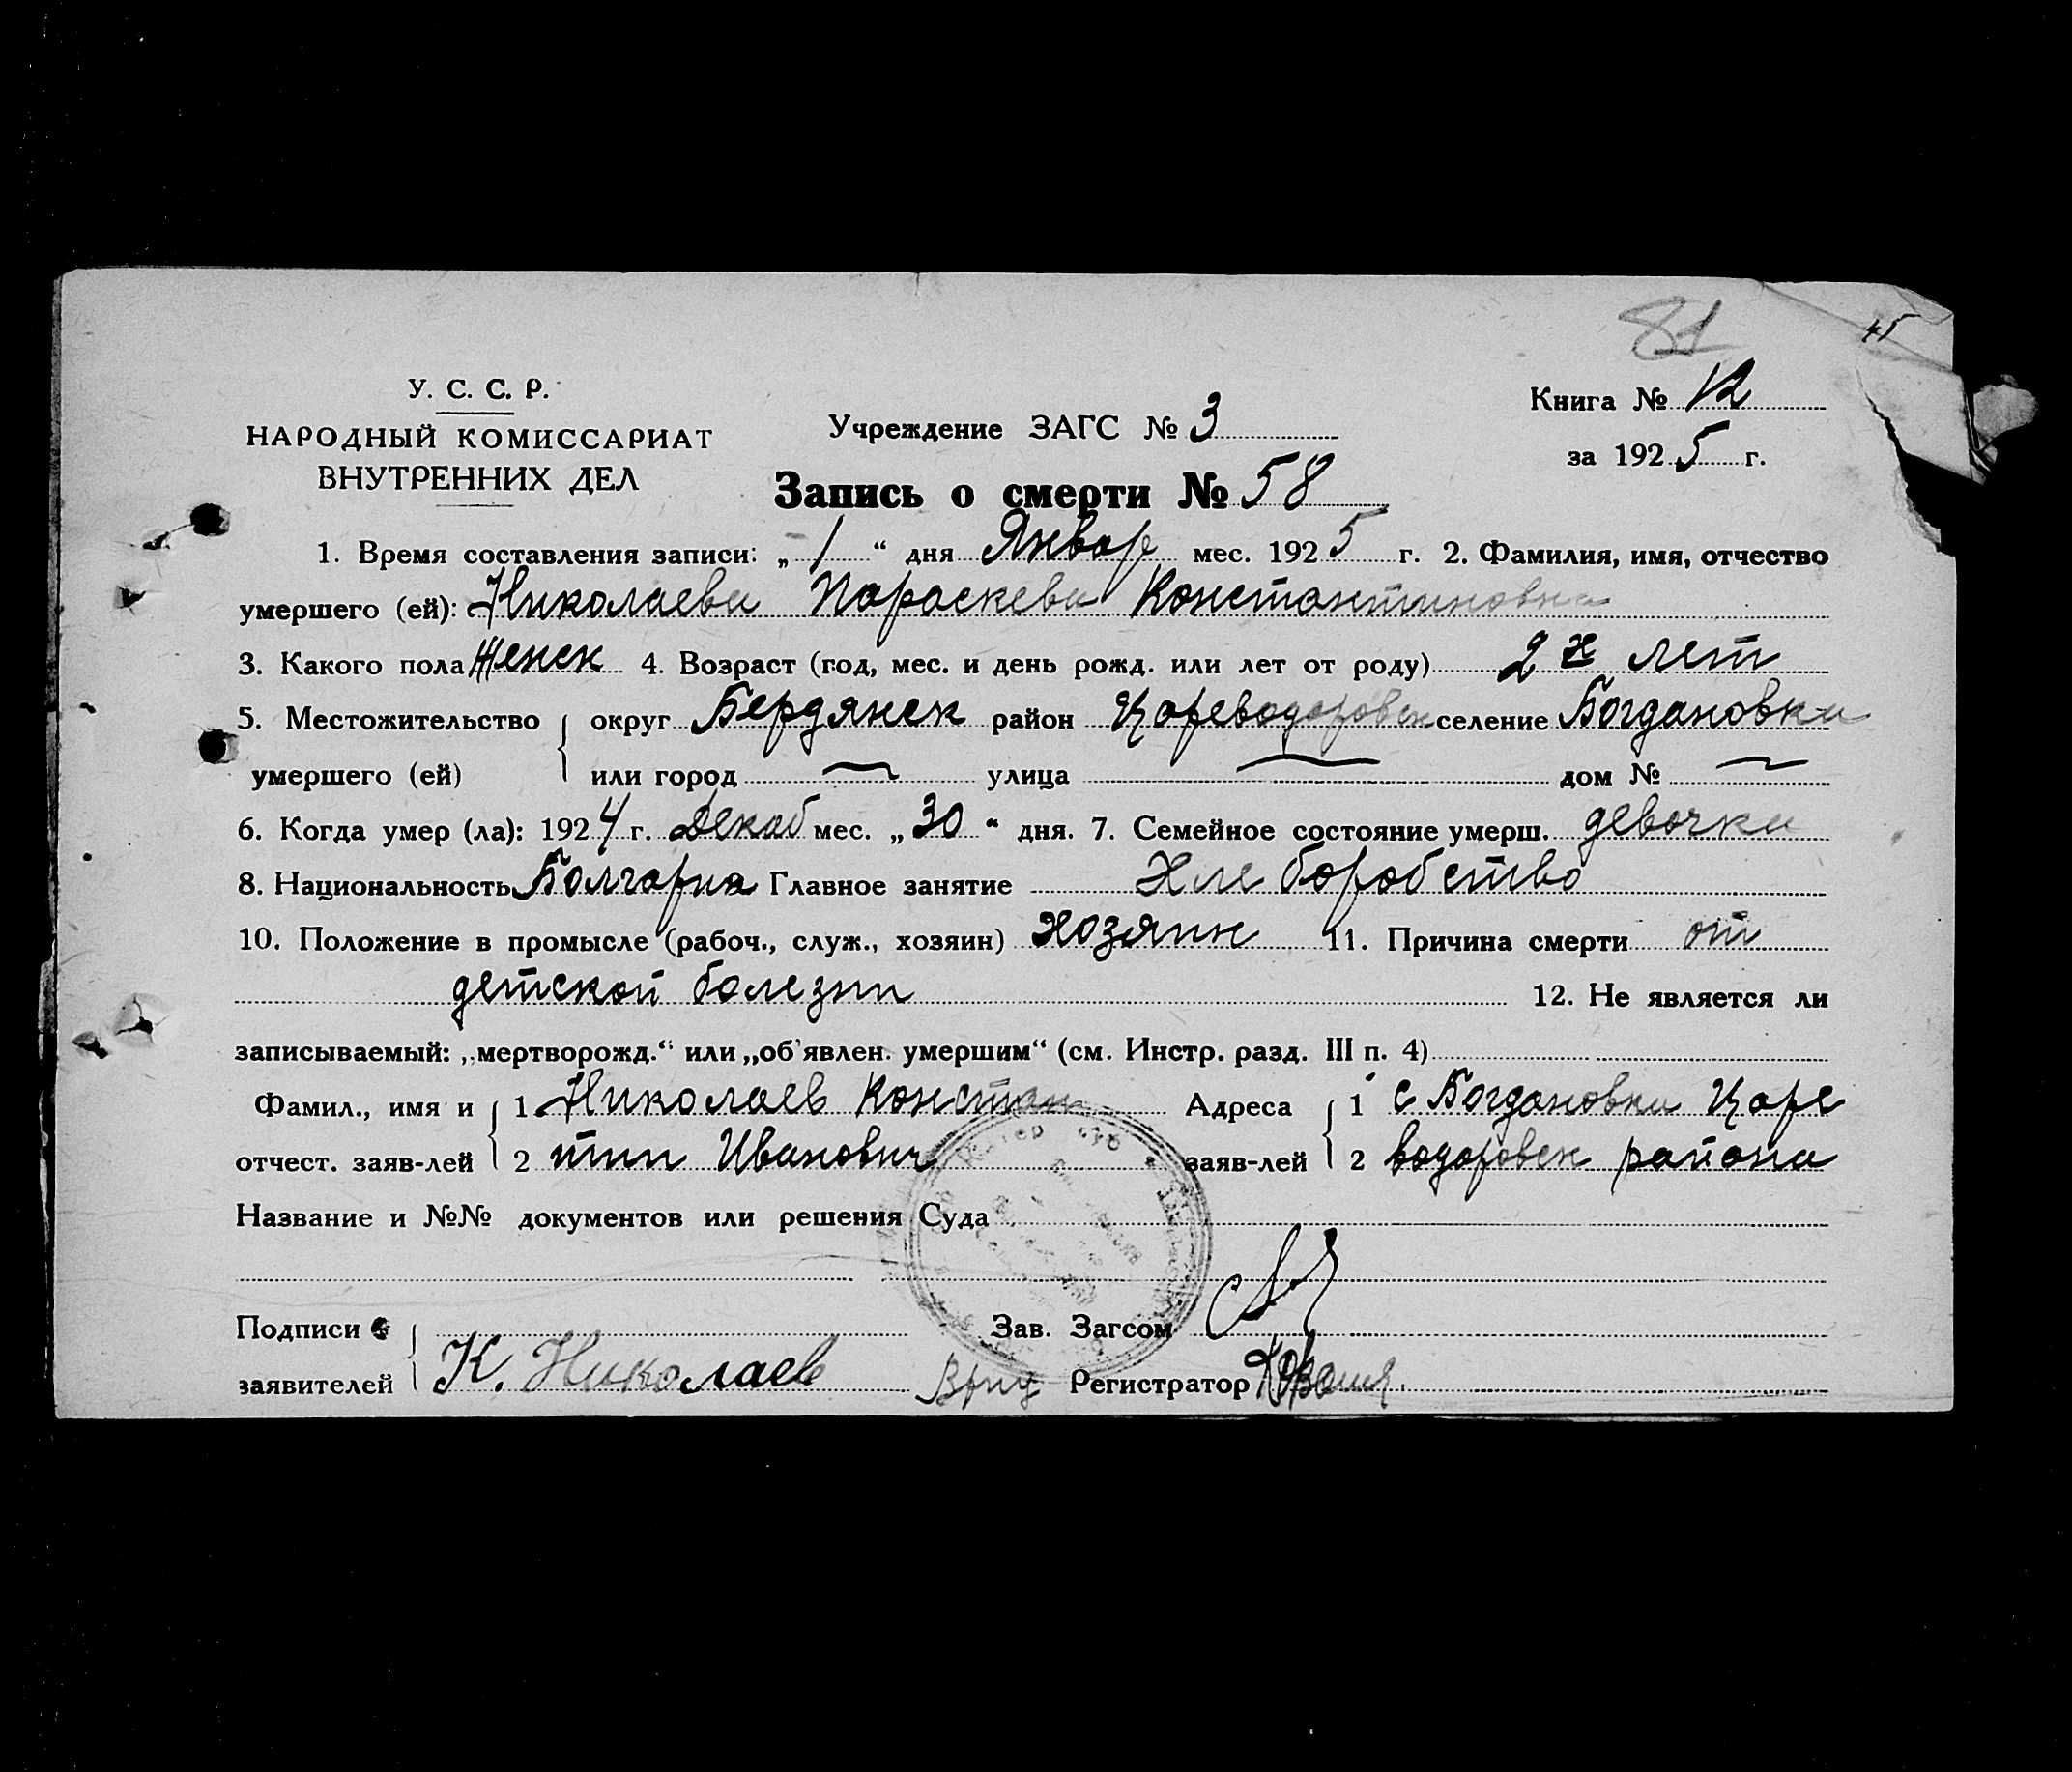 81
45
У. С. С. Р.
НАРОДНЫЙ КОМИССАРИАТ
ВНУТРЕННИХ ДЕЛ
Учреждение ЗАГС № 3
Книга № 12
за 1925 г.
Запись о смерти № 58
1. Время составления записи: „1“ дня Январ мес. 1925 г. 2. Фамилия, имя, отчество
умершего (ей): Николаева Параскева Константиновна
3. Какого пола Женск 4. Возраст (год, мес. и день рожд. или лет от роду) 2х лет
5. Местожительство округ Бердянск район Цареводаровск селение Богдановка
умершего (ей) или город — улица — дом № —
6. Когда умер (ла): 1924 г. Декаб мес. „30“ дня. 7. Семейное состояние умерш. девочка
8. Национальность Болгарка Главное занятие Хлеборобство
10. Положение в промысле (рабоч., служ., хозяин) Хозяин 11. Причина смерти от
детской болезни 12. Не является ли
записываемый: „мертворожд.“ или „об'явлен. умершим“ (см. Инстр. разд. III п. 4)
Фамил., имя и 1 Николаев Констан Адреса 1 с Богдановки Царе
отчест. заяв-лей 2 тин Иванович заяв-лей 2 водаровск района
Название и №№ документов или решения Суда
Подписи Зав. Загсом
заявителей К. Николаев Врид Регистратор